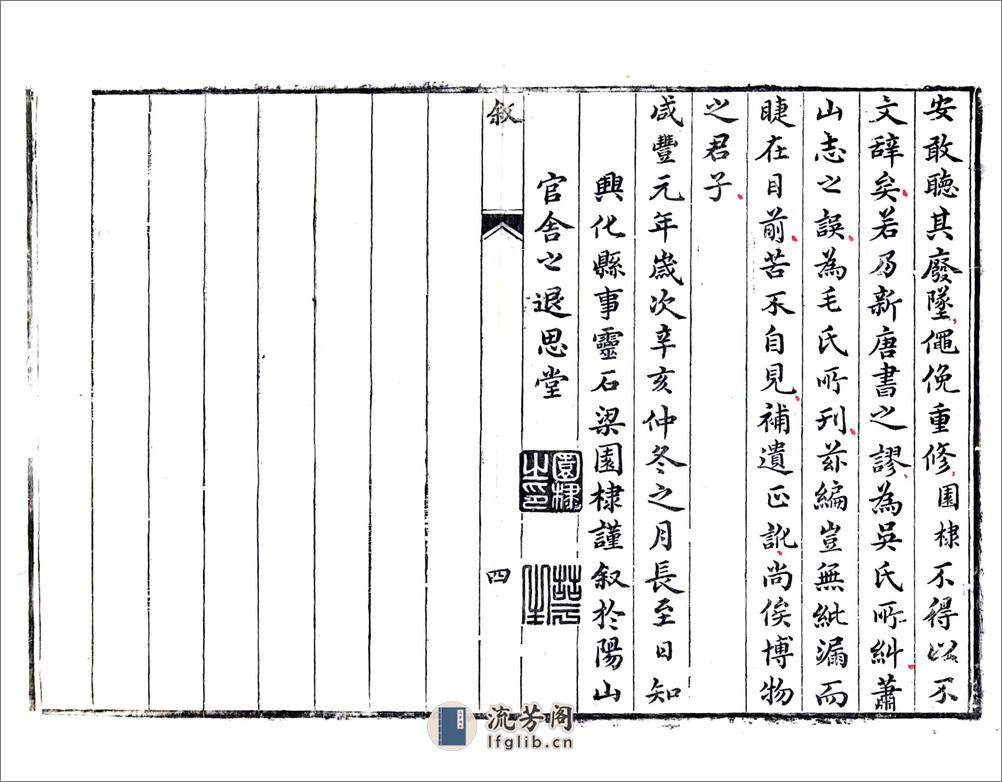 安敢聽其廢墜僶俛重修園棣不得以不
文辭矣若乃新唐書之謬為吳氏所糾蕭
山志之誤為毛氏所刊茲編豈無紕漏而
睫在目前苦不自見補遺正訛尚俟博物
之君子
咸豐元年歲次辛亥仲冬之月長至日知
興化縣事靈石梁園棣謹叙於陽山
官舍之退思堂
園棣之印
叙
四
流芳阁
lfglib.cn